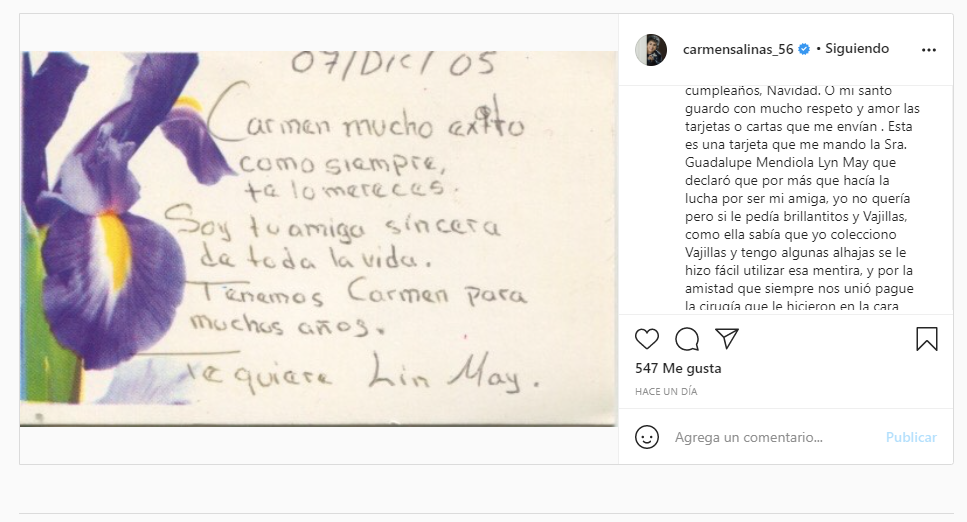 07/Dic/05
Carmen mucho exito
como siempre,
te lo mereces.
Soy tu amiga sincera
de toda la vida.
Tenemos Carmen para
muchos años.
Te quiere Lin May.
carmensalinas_56 • Siguiendo
cumpleaños, Navidad. O mi santo
guardo con mucho respeto y amor las
tarjetas o cartas que me envían . Esta
es una tarjeta que me mando la Sra.
Guadalupe Mendiola Lyn May que
declaró que por más que hacía la
lucha por ser mi amiga, yo no quería
pero si le pedía brillantitos y Vajillas,
como ella sabía que yo colecciono
Vajillas y tengo algunas alhajas se le
hizo fácil utilizar esa mentira, y por la
amistad que siempre nos unió pague
la cirugía que le hicieron en la cara
547 Me gusta
HACE UN DÍA
Agrega un comentario... Publicar